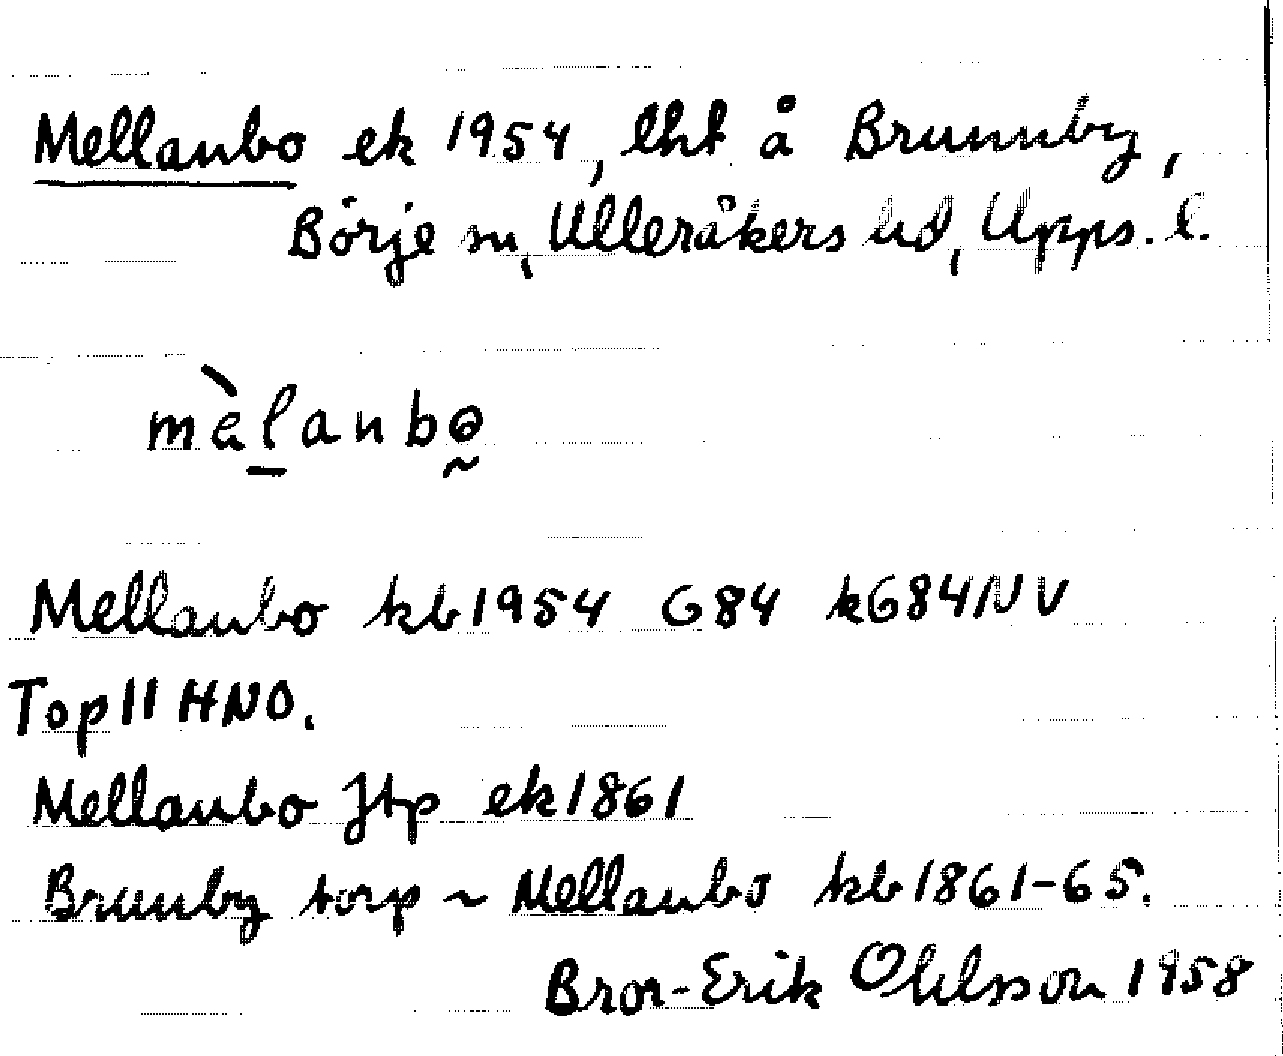 Mellanbo ek 1954, lht å Brunnby,
Börje sn, Ulleråkers hd, Upps. l.
mèla̲nbo̰
Mellanbo kb 1954 G84 kG84NV
Top 11 HNO.
Mellanbo Jtp ek 1861
Brunnby torp ~ Mellanbo kb 1861-65.
Bror-Erik Ohlsson 1958